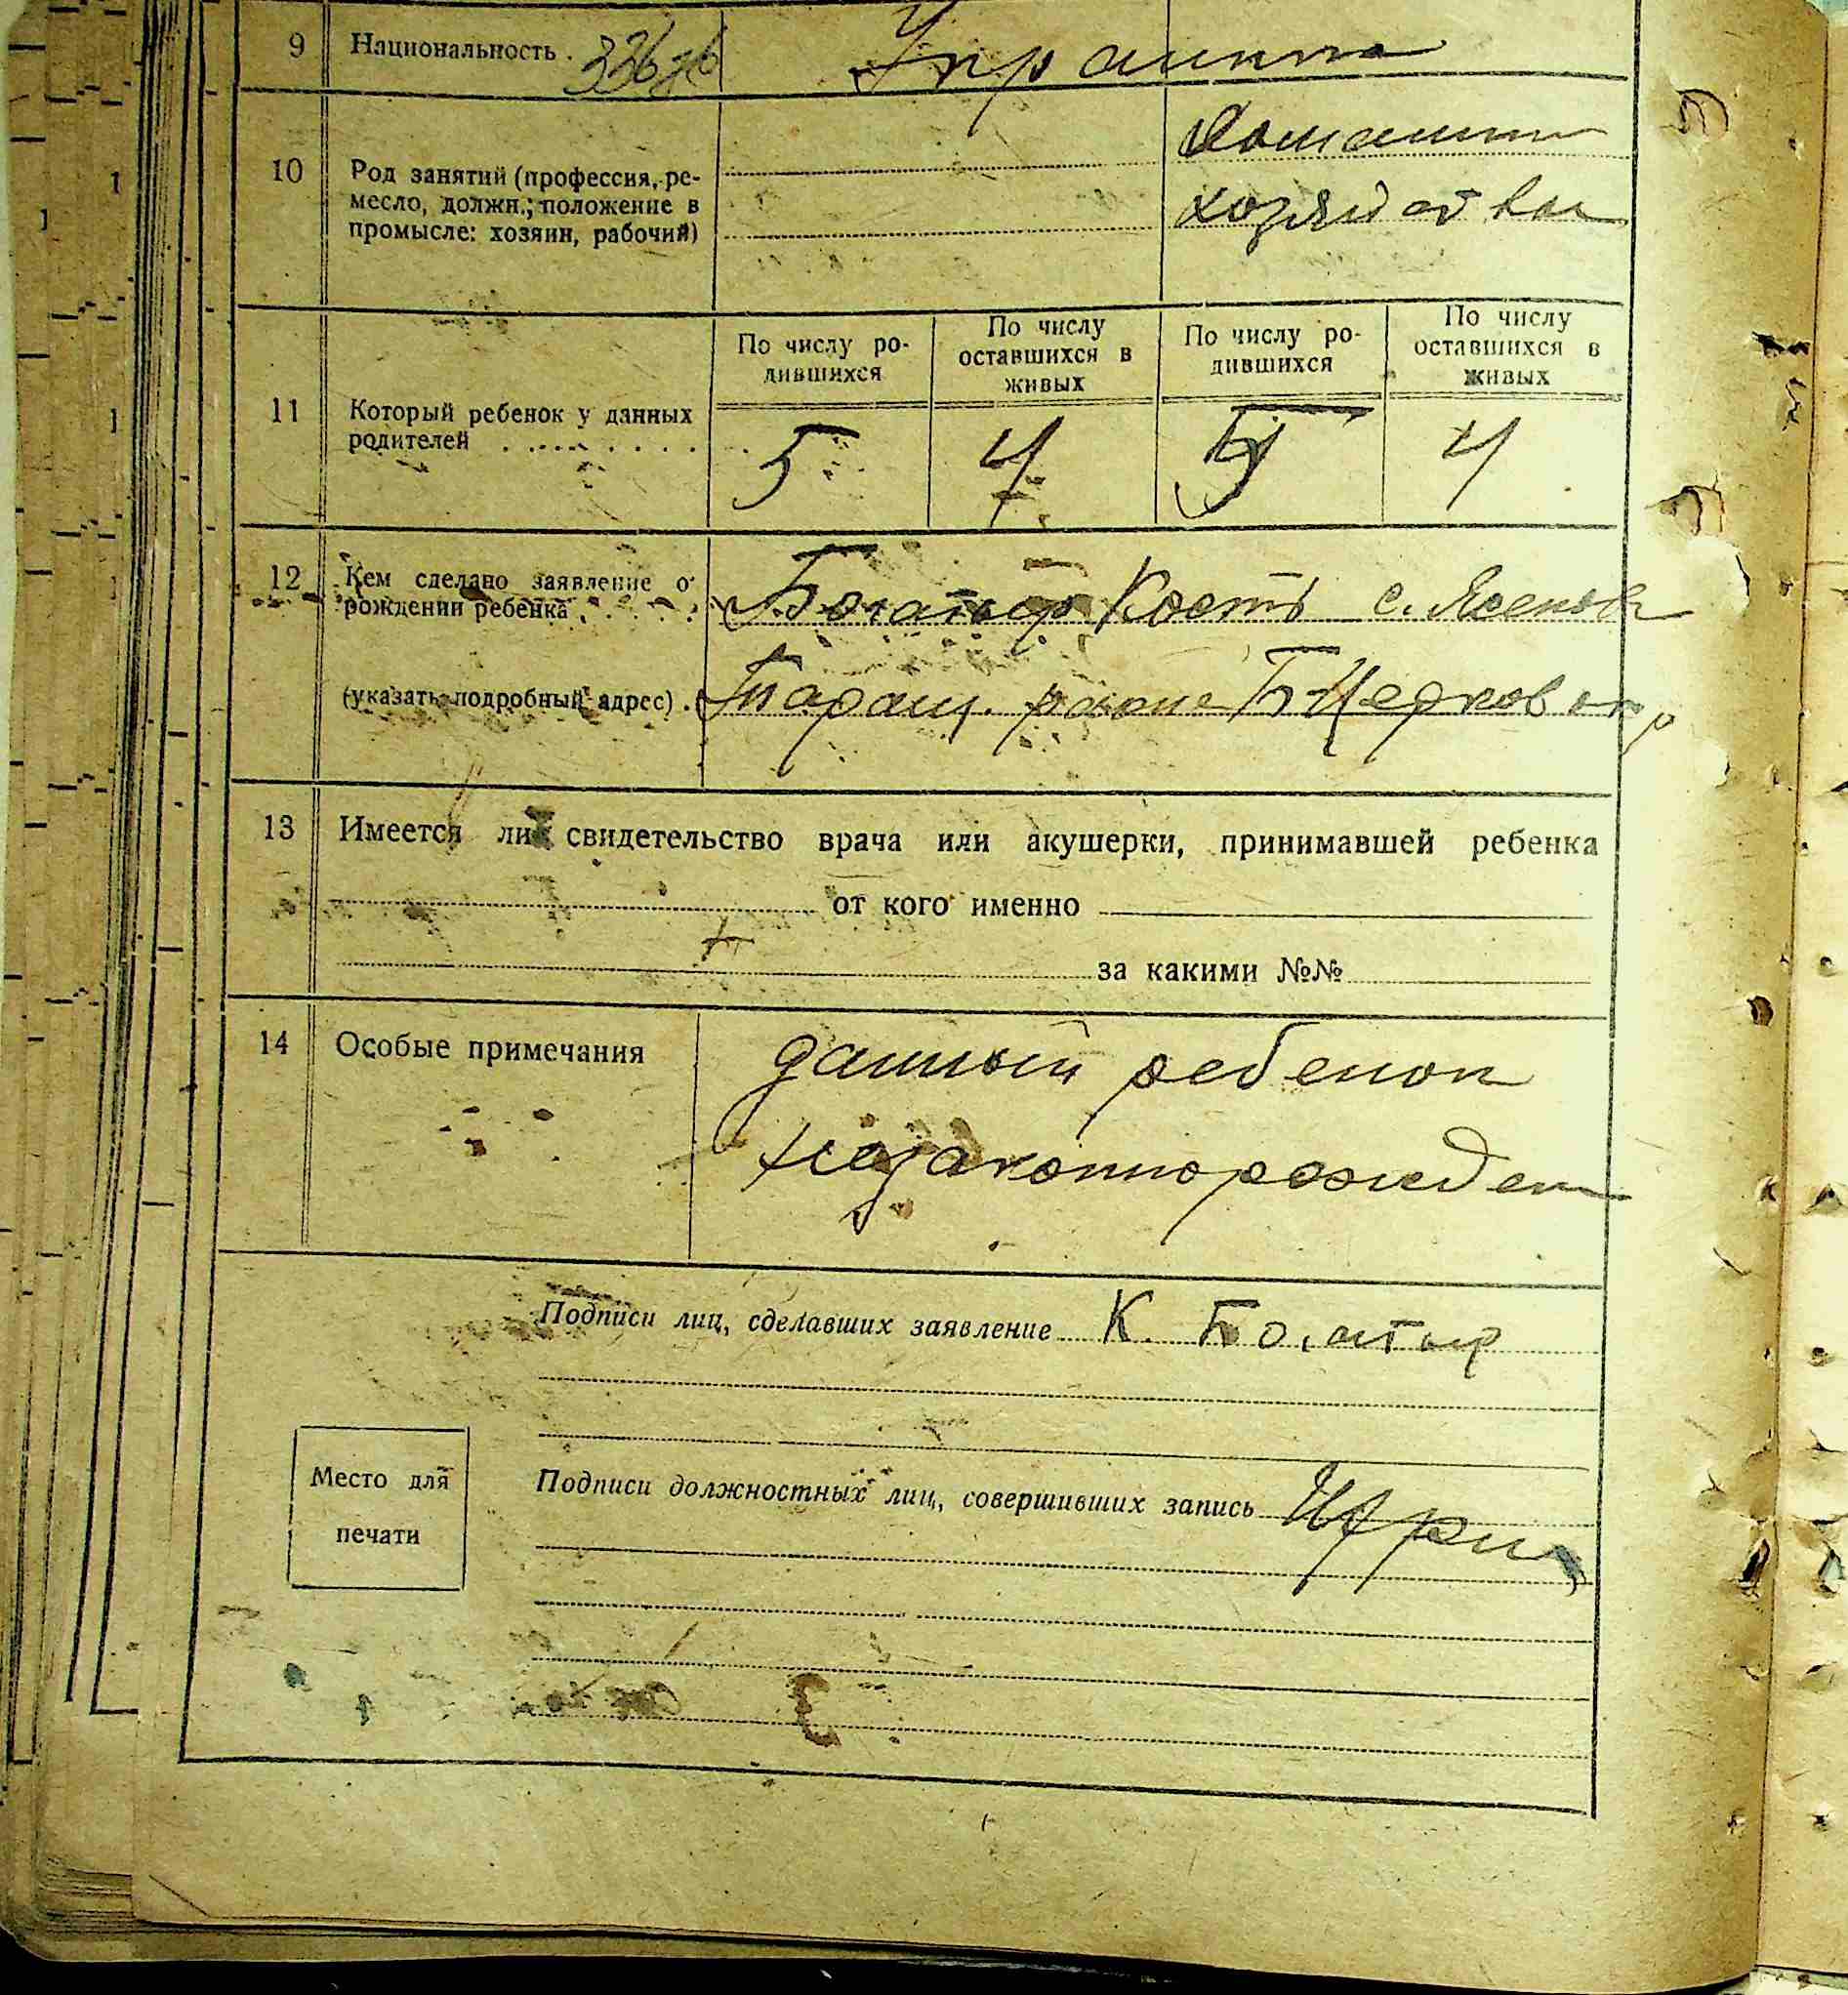 9 Национальность
10 Род занятий (профессия, ре-
месло, должн.; положение в
промысле: хозяин, рабочий)
хозяйства
11 Который ребенок у данных
родителей . . . . . . . . .
По числу ро-
дившихся
По числу
оставшихся в
живых
По числу ро-
дившихся
По числу
оставшихся в
живых
5 4 5 4
12 Кем сделано заявление о
рождении ребенка . . . . .
Богатыр Кость с.
(указать подробный адрес) .
Таращ. района Б-Церков окр
13 Имеется ли свидетельство врача или акушерки, принимавшей ребенка
от кого именно
за какими №№
14 Особые примечания
данный ребенок
незаконнорожден
Подписи лиц, сделавших заявление К. Богатыр
Место для
печати
Подписи должностных лиц, совершивших запись